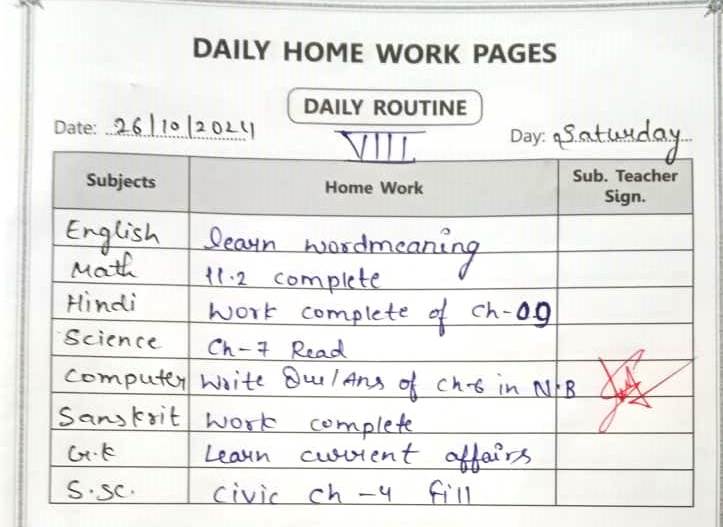 DAILY HOME WORK PAGES
DAILY ROUTINE
Date: 26/10/2024 Day: Saturday
VIII
Subjects Home Work Sub. Teacher Sign.
English learn wordmeaning
Math 11.2 complete
Hindi Work complete of ch-09
Science Ch-7 Read
Computer Write Que/Ans of ch-6 in N.B
Sanskrit Work complete
G.K Learn current affairs
S.SC. Civic ch-4 fill